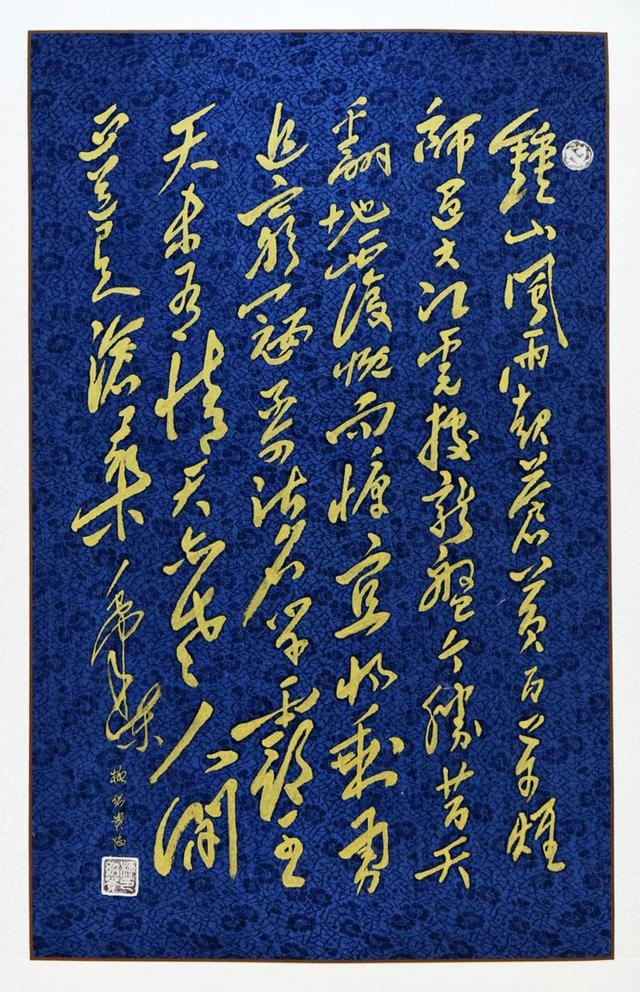 鍾山風雨起蒼黃百萬雄
師過大江虎據龍盤今勝昔天
翻地覆慨而慷宜將剩勇
追窮寇不可沽名學霸王
天若有情天亦老人間
正道是滄桑 毛澤東